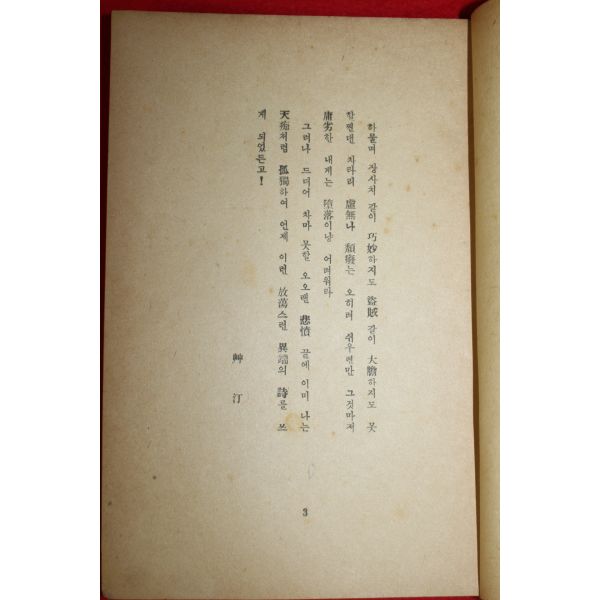 하물며 장사치 같이 巧妙하지도 盜賊 같이 大膽하지도 못
할찐댄 차라리 虛無나 頹癈는 오히려 쉬우련만 그것마저
庸劣한 내게는 墮落이냥 어려워라
그러나 드디어 차마 못할 오오랜 悲憤 끝에 이미 나는
天痴처럼 孤獨하여 언제 이런 放蕩스런 異端의 詩를 쓰
게 되었든고!
艸 汀
3